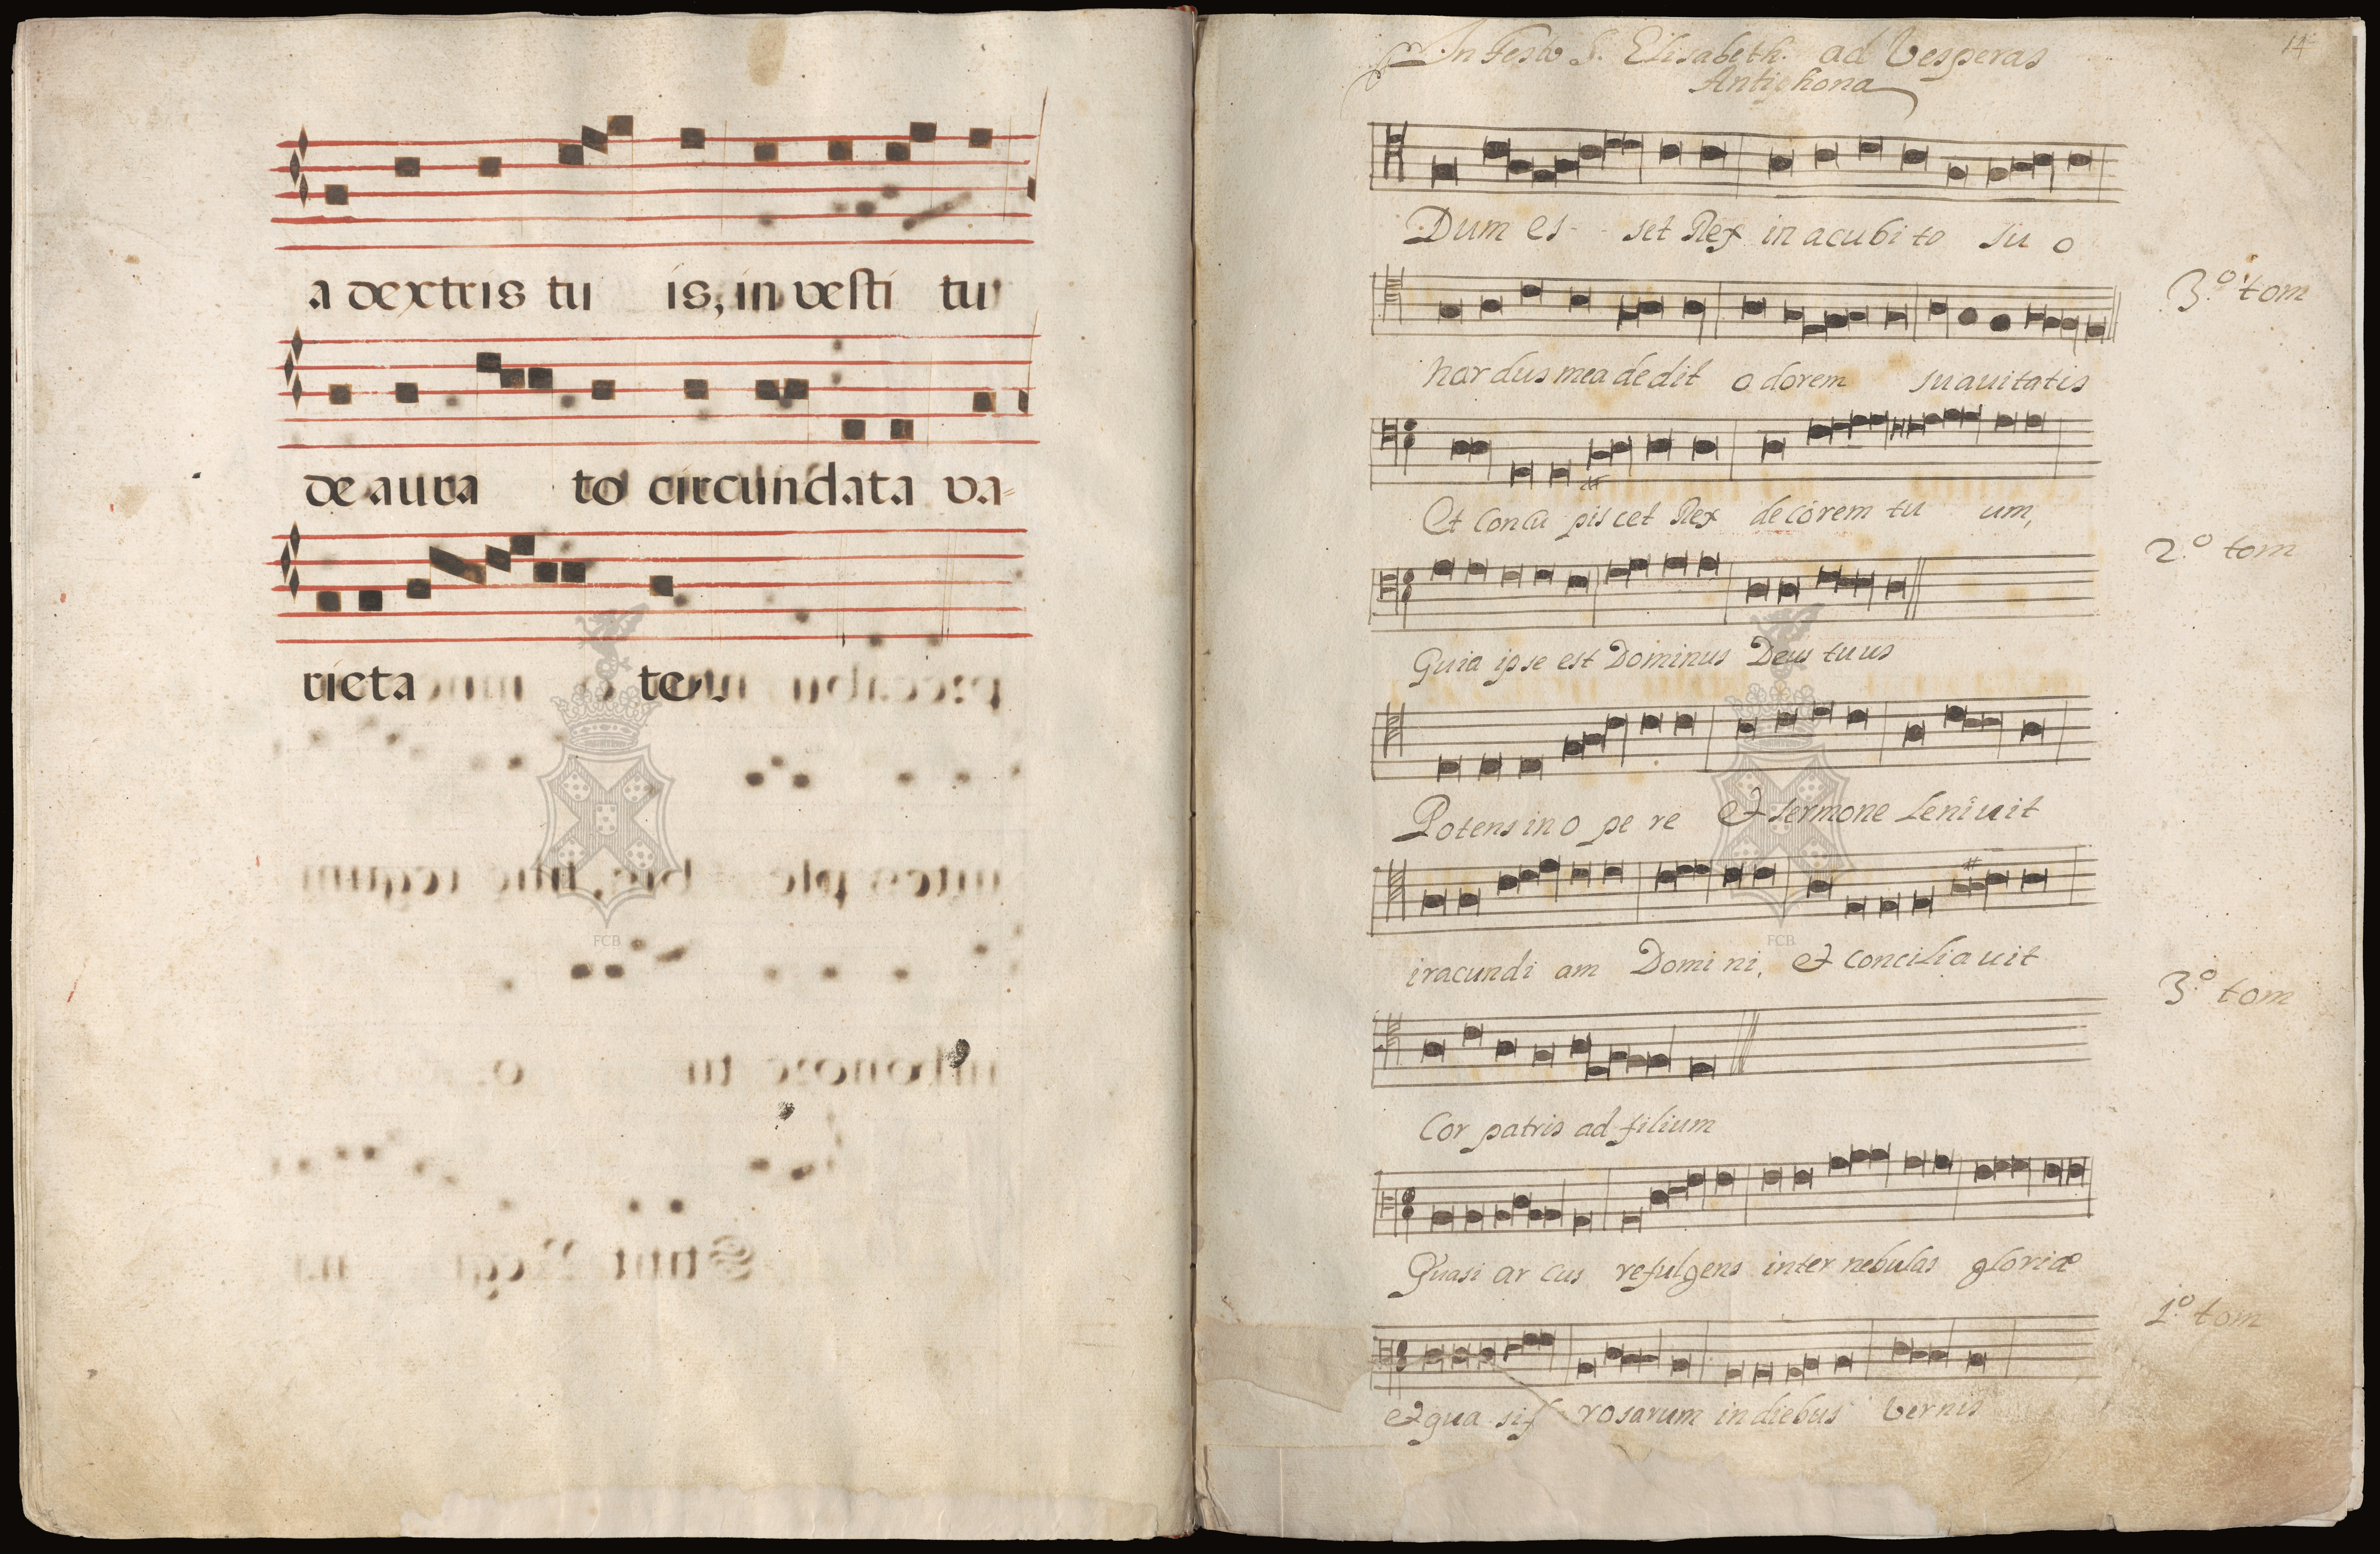 a dextris tu is, in vesti tu
de aura to circundata va-
rieta tes
14
In Festo S. Elisabeth. ad Vesperas
Antiphona
Dum es - set Rex in acubito su o
3.º tom
nardus mea dedit odorem suauitatis
Et concu piscet Rex decorem tu um,
2.º tom
Quia ipse est Dominus Deus tuus
Potens in o pe re & sermone Leniuit
iracundi am Domi ni, & conciliauit
3.º tom
Cor patris ad filium
Quasi ar cus refulgens inter nebulas gloriæ
1.º tom
& qua si rosarum in diebus vernis
FCB
FCB